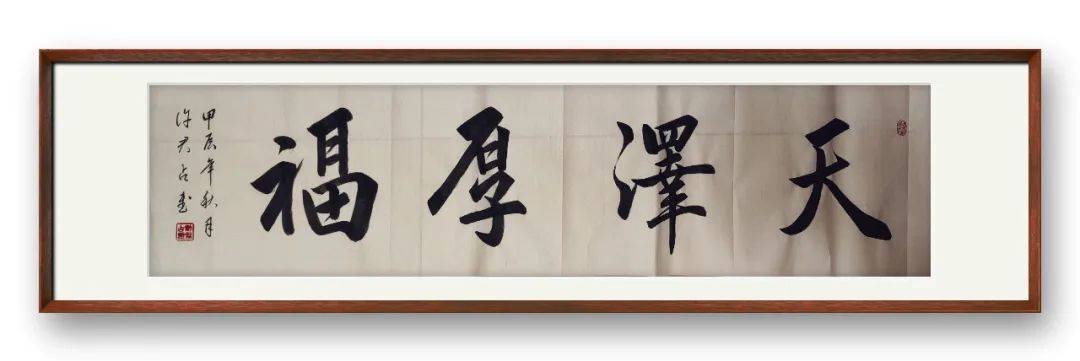 天澤厚福
甲辰年秋月
许天占书